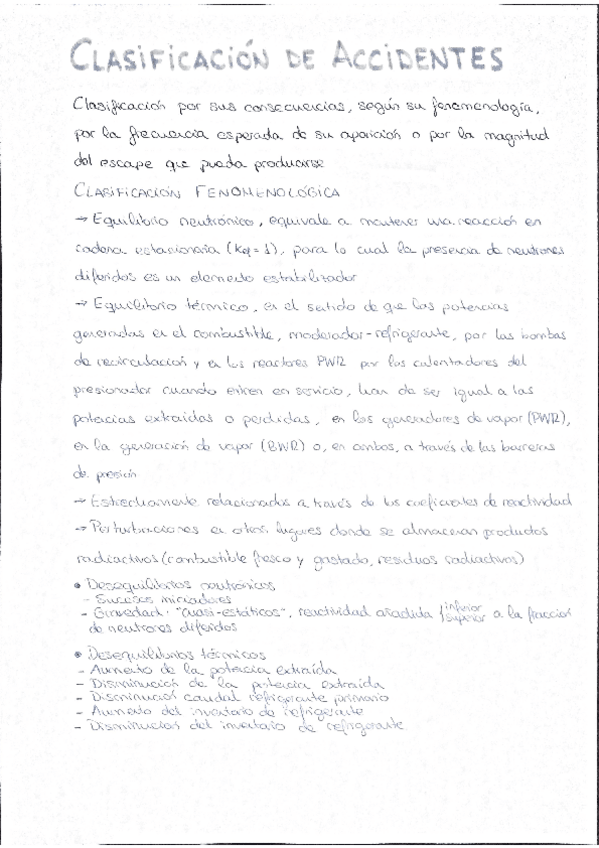 CLASIFICACIÓN DE ACCIDENTES
Clasificación por sus consecuencias, según su fenomenología,
por la frecuencia esperada de su aparición o por la magnitud
del escape que pueda producirse
CLASIFICACIÓN FENOMENOLÓGICA
→ Equilibrio neutrónico, equivale a mantener una reacción en
cadena estacionaria (Kef = 1), para lo cual la presencia de neutrones
diferidos es un elemento estabilizador
→ Equilibrio térmico, en el sentido de que las potencias
generadas en el combustible, moderador-refrigerante, por las bombas
de recirculación y en los reactores PWR por los calentadores del
presionador cuando entren en servicio, han de ser igual a las
potencias extraídas o perdidas, en los generadores de vapor (PWR),
en la generación de vapor (BWR) o, en ambos, a través de las barreras
de presión
→ Estrechamente relacionados a través de los coeficientes de reactividad
→ Perturbaciones en otros lugares donde se almacenan productos
radiactivos (combustible fresco y gastado, residuos radiactivos)
• Desequilibrios neutrónicos
- Sucesos iniciadores
- Gravedad: "cuasi-estáticos", reactividad añadida { inferior superior a la fracción
de neutrones diferidos
• Desequilibrios térmicos
- Aumento de la potencia extraída
- Disminución de la potencia extraída
- Disminución caudal refrigerante primario
- Aumento del inventario de refrigerante
- Disminución del inventario de refrigerante